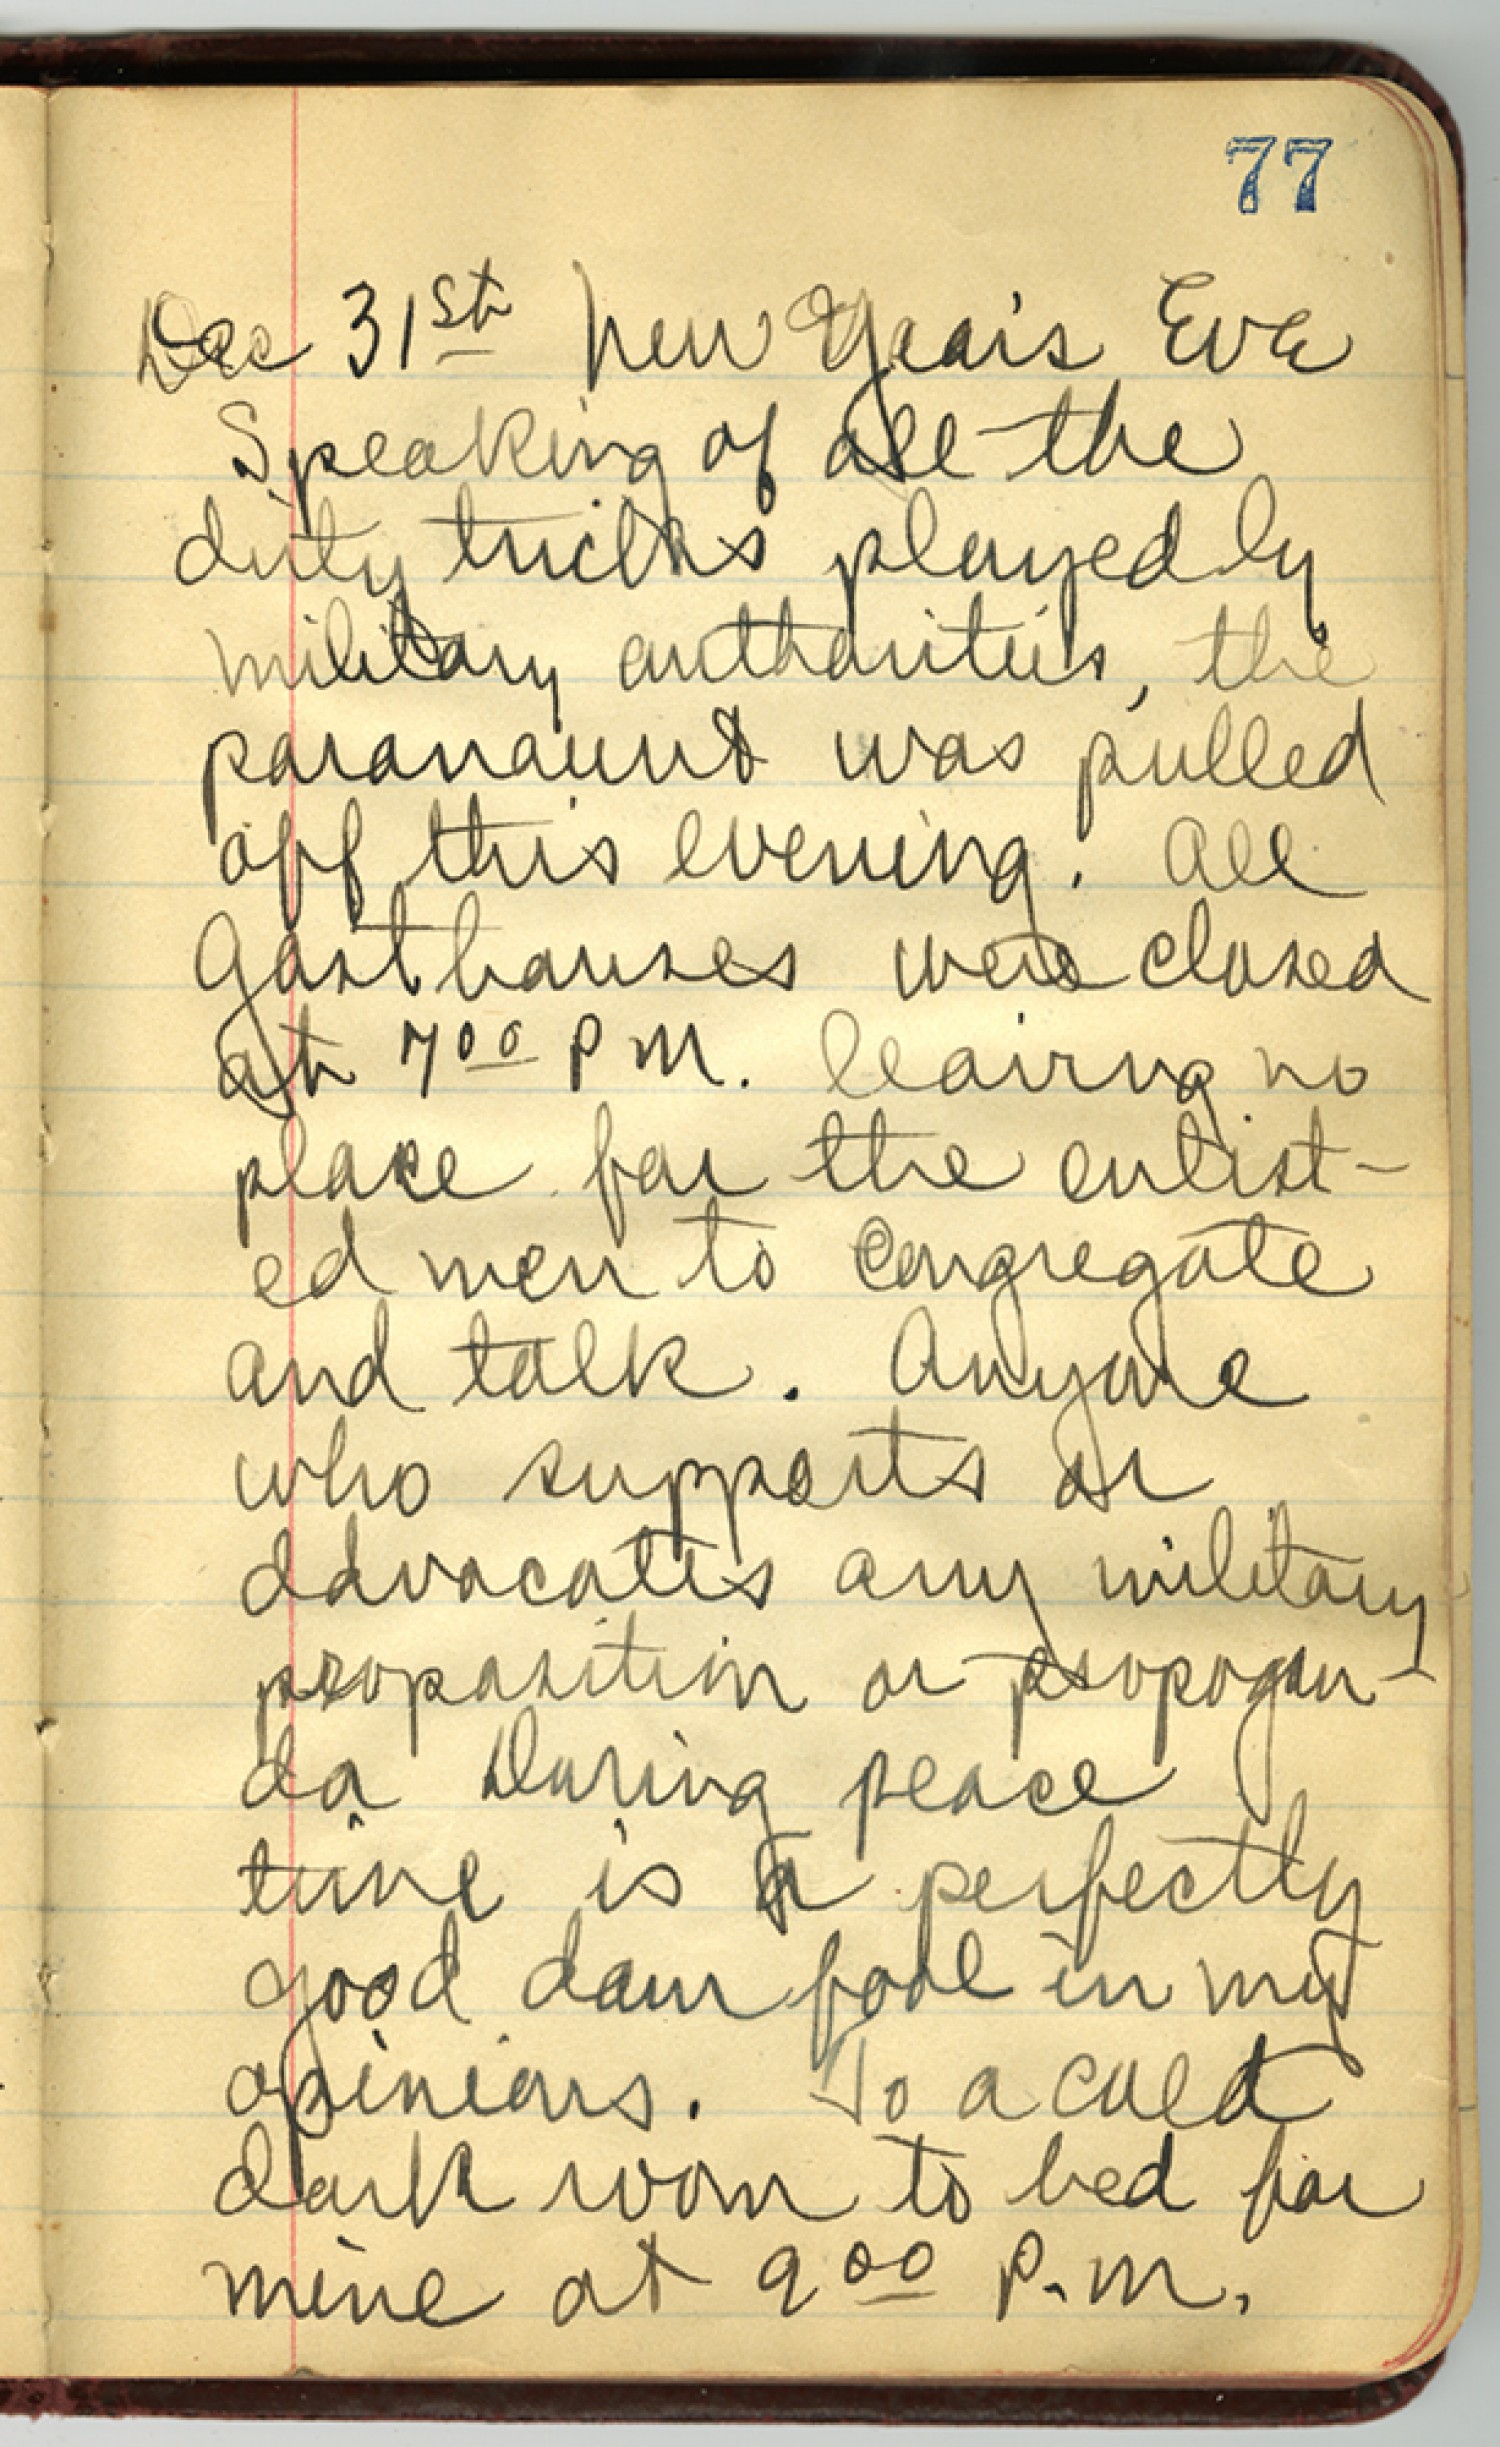 77
Dec 31st New Year's Eve
Speaking of all the
dirty tricks played by
military authorities, the
paramount was pulled
off this evening. All
Gasthauses were closed
at 7 00 P M. leaving no
place for the enlist-
ed men to congregate
and talk. Anyone
who supports or
advocates any military
proposition or propogan-
da During peace
time is a perfectly
good dam fool in my
opinions. To a cold
dark room to bed for
mine at 9 00 P. M.